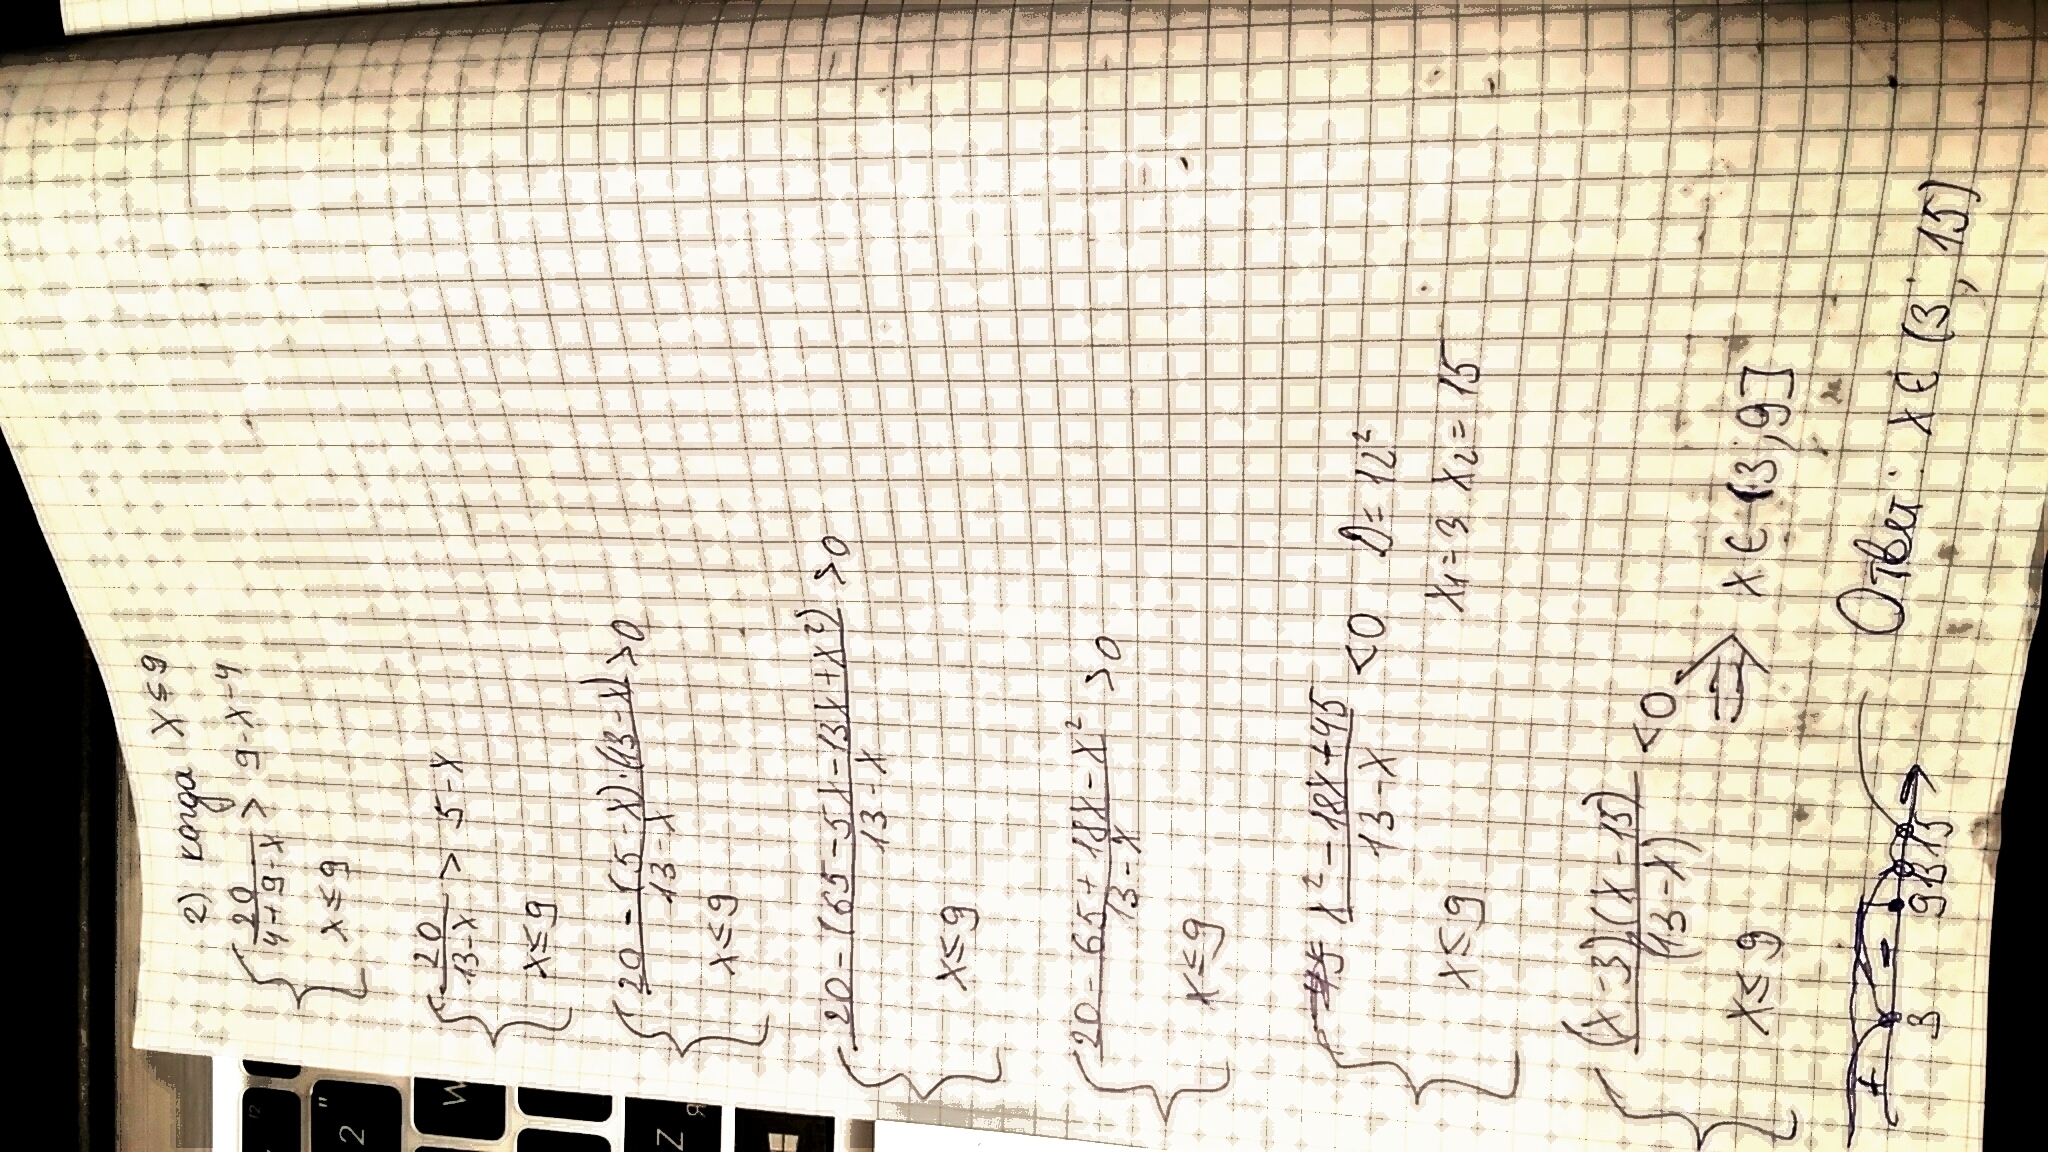 2) когда x ≤ 9
{ 20/(4+9-x) > 9-x-4
x ≤ 9
{ 20/(13-x) > 5-x
x ≤ 9
{ (20-(5-x)·(13-x))/(13-x) > 0
x ≤ 9
{ (20-(65-5x-13x+x²))/(13-x) > 0
x ≤ 9
{ (20-65+18x-x²)/(13-x) > 0
x ≤ 9
{ (x²-18x+45)/(13-x) < 0 D=12²
x₁=3 x₂=15
x ≤ 9
{ ((x-3)(x-15))/(13-x) < 0
x ≤ 9
⇒ x ∈ (3;9]
+ -
3 9 13 15
Ответ: x ∈ (3; 15)
2
W
Z Я